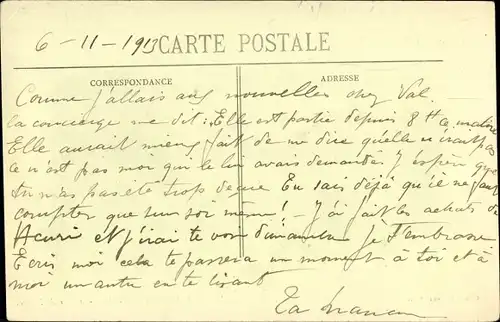 6-11-1913 CARTE POSTALE
CORRESPONDANCE ADRESSE
Comme j'allais aux nouvelles chez Val.
la concierge me dit: Elle est partie depuis 8 H ce matin
Elle aurait mieux fait de me dire qu'elle n'irait pas
ce n'est pas moi qui le lui avais demandé. J'espère que
tu n'as pas été trop déçue. Tu sais déjà qu'il ne faut
compter que sur soi même! - J'ai fait les achats de
Henri et j'irai te voir dimanche je t'embrasse
Ecris moi cela te passera un moment à toi et à
moi un autre en te lisant
Ta